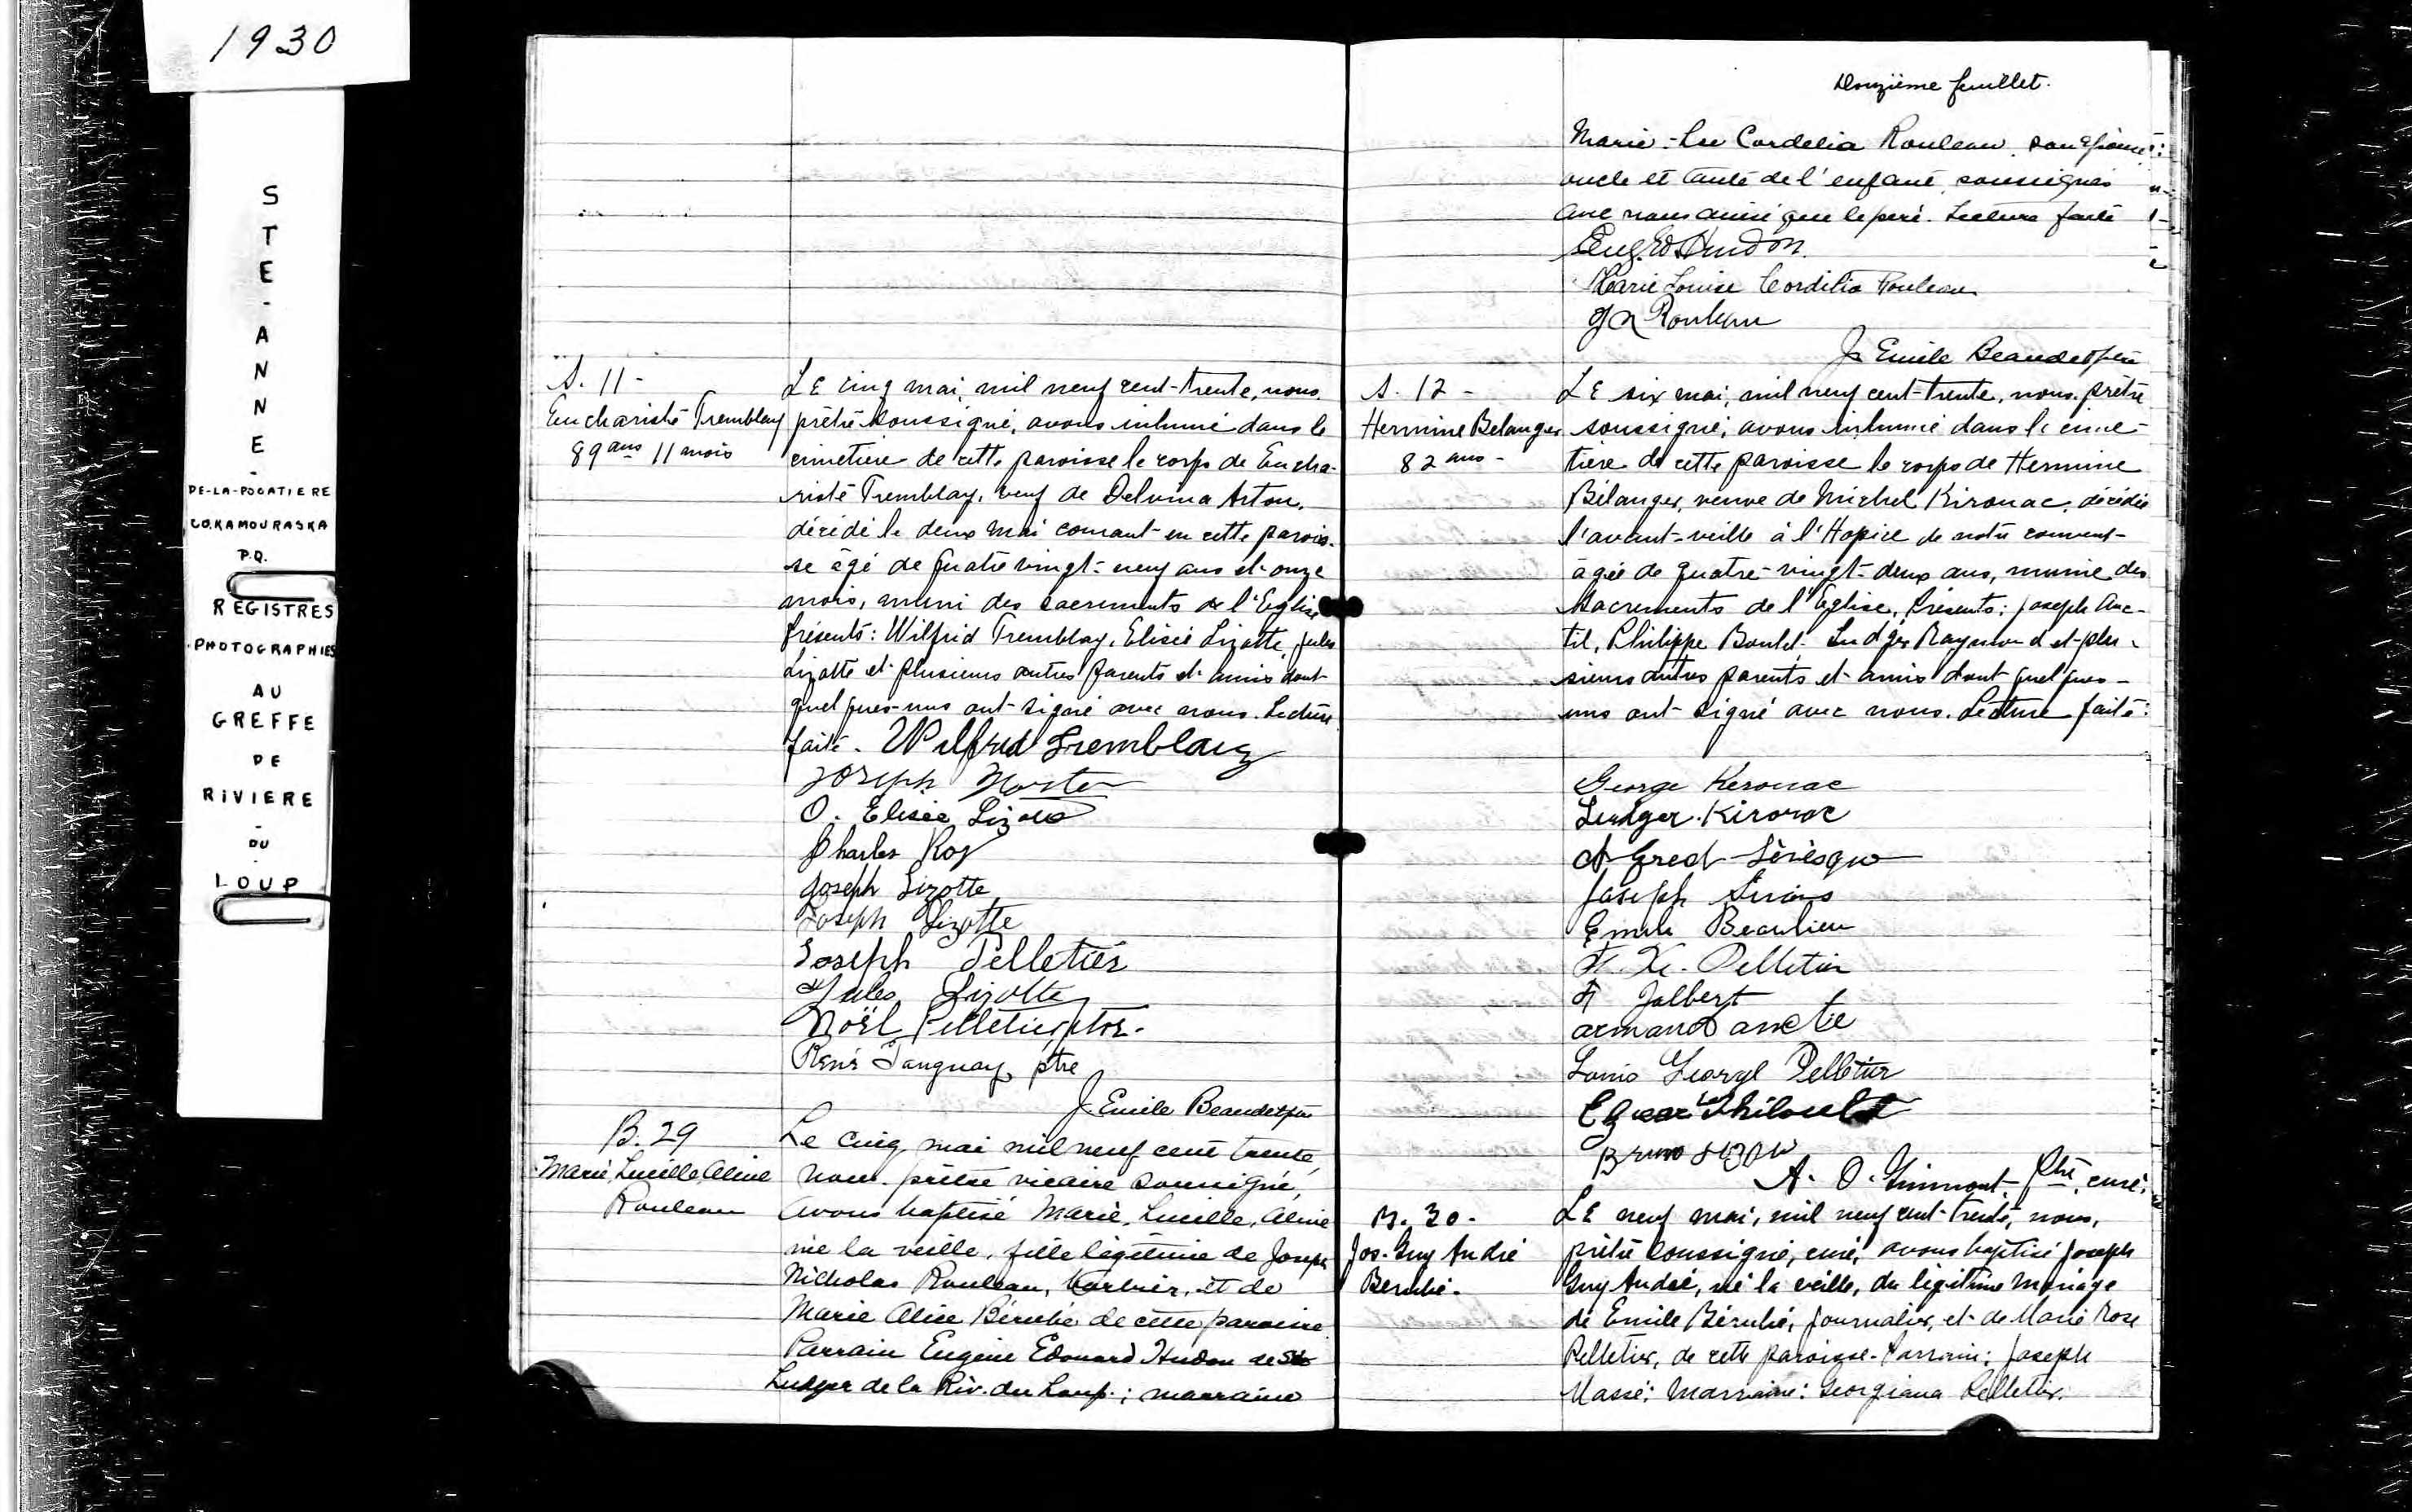 1930
STE-ANNE-
DE-LA-POCATIERE
CO. KAMOURASKA
P.Q.
REGISTRES
PHOTOGRAPHIES
AU
GREFFE
DE
RIVIERE
-
DU
LOUP
S. 11 -
Eucharisté Tremblay
89 ans 11 mois
LE cinq mai, mil neuf cent-trente, nous,
prêtre soussigné, avons inhumé dans le
cimetière de cette paroisse le corps de Eucha-
risté Tremblay, veuf de Delvina
décédé le deux mai courant en cette parois-
se âgé de quatre vingt-neuf ans et onze
mois, muni des sacrements de l'Eglise
Présents: Wilfrid Tremblay, Elisée Lizotte, Jules
Lizotte et plusieurs autres parents et amis dont
quelques-uns ont signé avec nous. Lecture
faite. Wilfrid Tremblay
Joseph
O. Elisée Lizotte
Charles Roy
Joseph Lizotte
Joseph Lizotte
Joseph Pelletier
Jules Lizotte
Noël Pelletier ptre.
René Tanguay, ptre
J. Emile Beaudet ptre
B. 29
Marie, Lucille, Aline
Rouleau
Le cinq mai mil neuf cent trente,
nous prêtre vicaire soussigné,
avons baptisé Marie, Lucille, Aline
née la veille, fille légitime de Joseph
Nicholas Rouleau, barbier, et de
Marie Alice Bérubé de cette paroisse
Parrain Eugène Edouard Hudon de St
Ludger de la Riv. du Loup; marraine
Douzième feuillet.
Marie-Lse Cordelia Rouleau son épouse:
oncle et tante de l'enfant, soussignés
avec nous ainsi que le père. Lecture faite
Eug. Ed Hudon.
Marie Louise Cordélia Rouleau
J N Rouleau
J. Emile Beaudet ptre
S. 12 -
Hermine Belanger
82 ans -
LE six mai, mil neuf cent-trente, nous, prêtre
soussigné, avons inhumé dans le cime-
tière de cette paroisse le corps de Hermine
Bélanger, veuve de Michel Kirouac, décédée
l'avant-veille à l'Hopice de notre couvent-
agée de quatre-vingt-deux ans, munie des
sacrements de l'Eglise. Présents: Joseph Anc-
til, Philippe Boulet, Ludger Raymond et plu-
sieurs autres parents et amis dont quelques-
uns ont signé avec nous. Lecture faite:
George Kerouac
Ludger Kirouac
Alfred Lévèsque
Joseph Sirois
Emile Beaulieu
F. X. Pelletier
F Jalbert
armand anctil
Louis George Pelletier
Thiboult
Bruno
A. O. Guimont, Ptre, curé.
B. 30 -
Jos. Guy André
Bérubé.
LE neuf mai, mil neuf cent-trente, nous,
prêtre soussigné, curé, avons baptisé Joseph
Guy André, né la veille, du légitime mariage
de Emile Bérubé, journalier, et de Marie Rose
Pelletier, de cette paroisse. Parrain: Joseph
Massé: Marraine: Georgiana Pelletier.